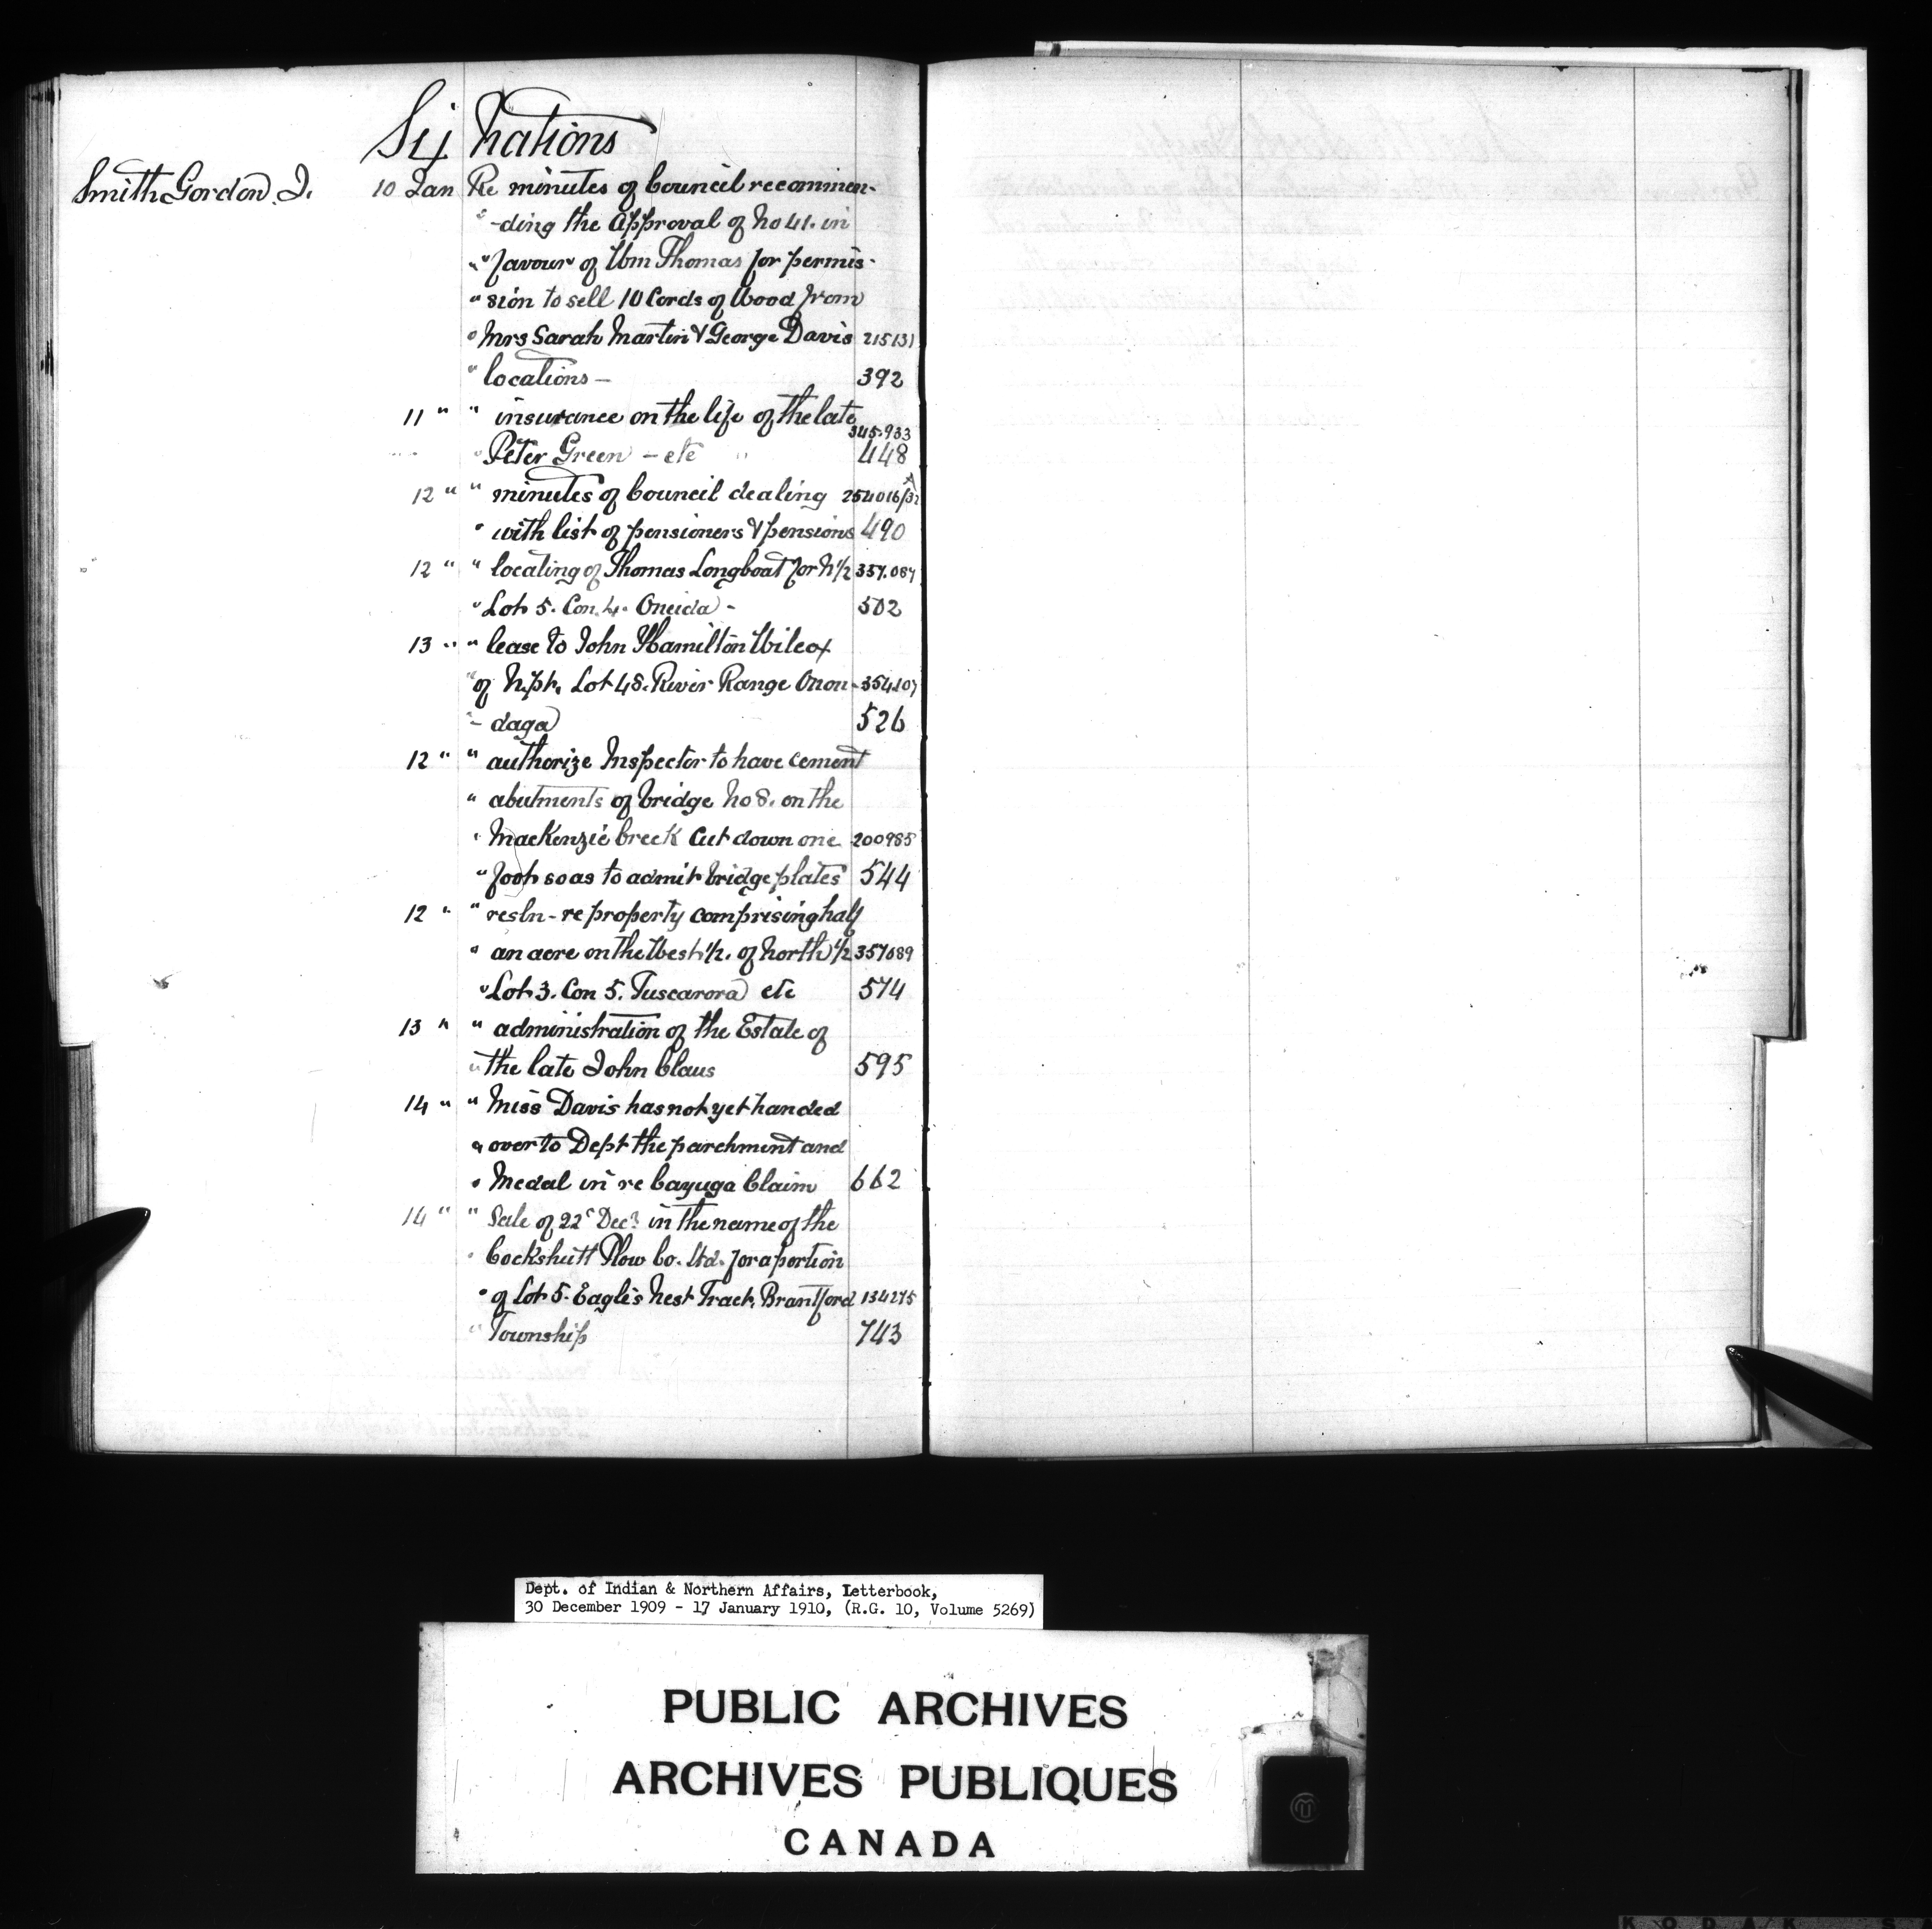 Six Nations
Smith Gordon. J. 10 Jan Re minutes of Council recommen-
" -ding the Approval of No 41. in
" favour of Wm Thomas for permis-
" sion to sell 10 Cords of Wood from
" Mrs Sarah Martin & George Davis 215131
" locations - 392
11 " " insurance on the life of the late 345.933
" Peter Green - etc " 448
12 " " minutes of Council dealing 254016/32
" with list of pensioners & pensions 490
12 " " locating of Thomas Longboat for N1/2 357.087
" Lot 5. Con. 4. Oneida - 502
13 " " lease to John Hamilton Wilcox
" of N.pt. Lot 48. River Range Onon- 354107
" - daga 526
12 " " authorize Inspector to have cement
" abutments of bridge No 8. on the
" MacKenzie Creek Cut down one 200985
" foot so as to admit bridge plates 544
12 " " resln - re property comprising half
" an acre on the West 1/2. of North 1/2 357089
" Lot 3. Con 5. Tuscarora etc 574
13 " " administration of the Estate of
" the late John Claus 595
14 " " Miss Davis has not yet handed
" over to Dept the parchment and
" Medal in re Cayuga Claim 662
14 " " Sale of 22d Decr in the name of the
" Cockshutt Plow Co. Ltd. for a portion
" of Lot 5. Eagle's Nest Tract, Brantford 134275
" Township 743
Dept. of Indian & Northern Affairs, Letterbook,
30 December 1909 - 17 January 1910, (R.G. 10, Volume 5269)
PUBLIC ARCHIVES
ARCHIVES PUBLIQUES
CANADA
KODAK S